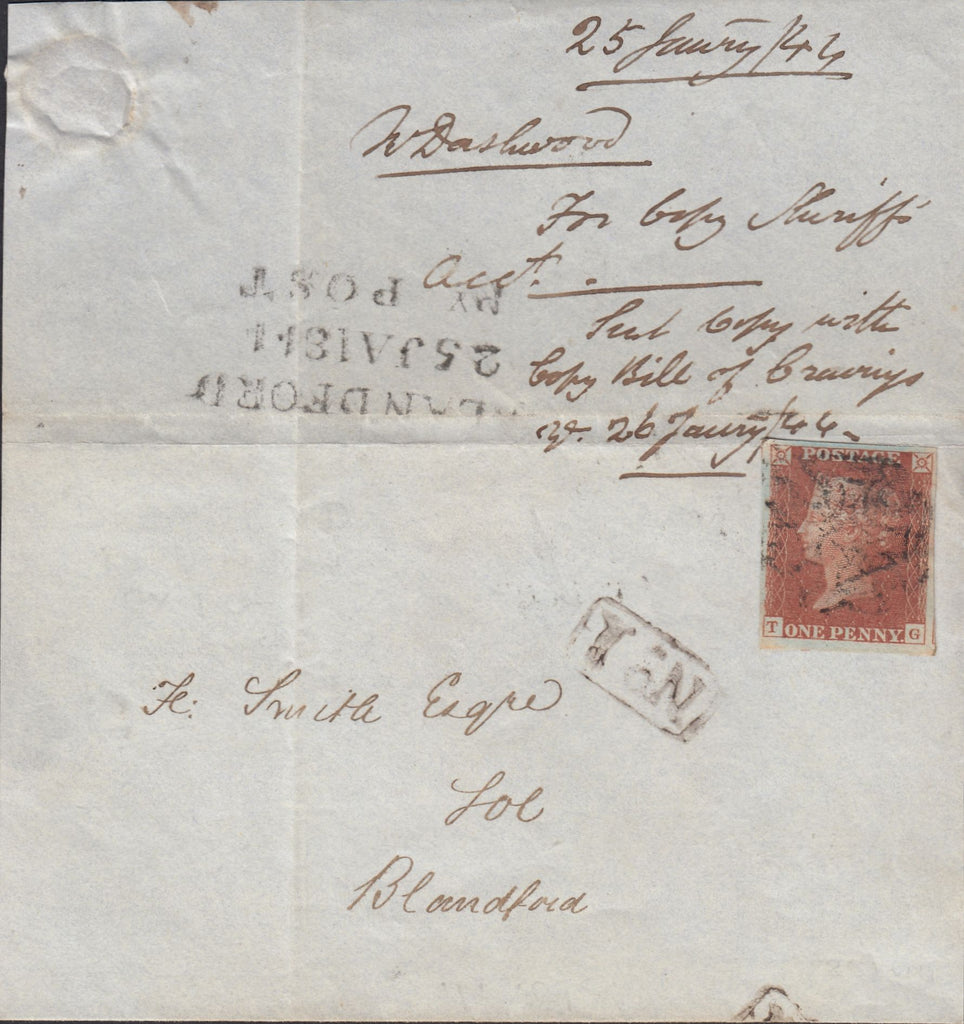 25 Janry/44
W Dashwood
For Copy Sheriffs
Acct.
Sent Copy with
Copy Bill of Cravings
26 Janry/44
BY
POST
25JA1844
BLANDFORD
POSTAGE
T ONE PENNY G
No 1
H: Smith Esqre
Sol
Blandford